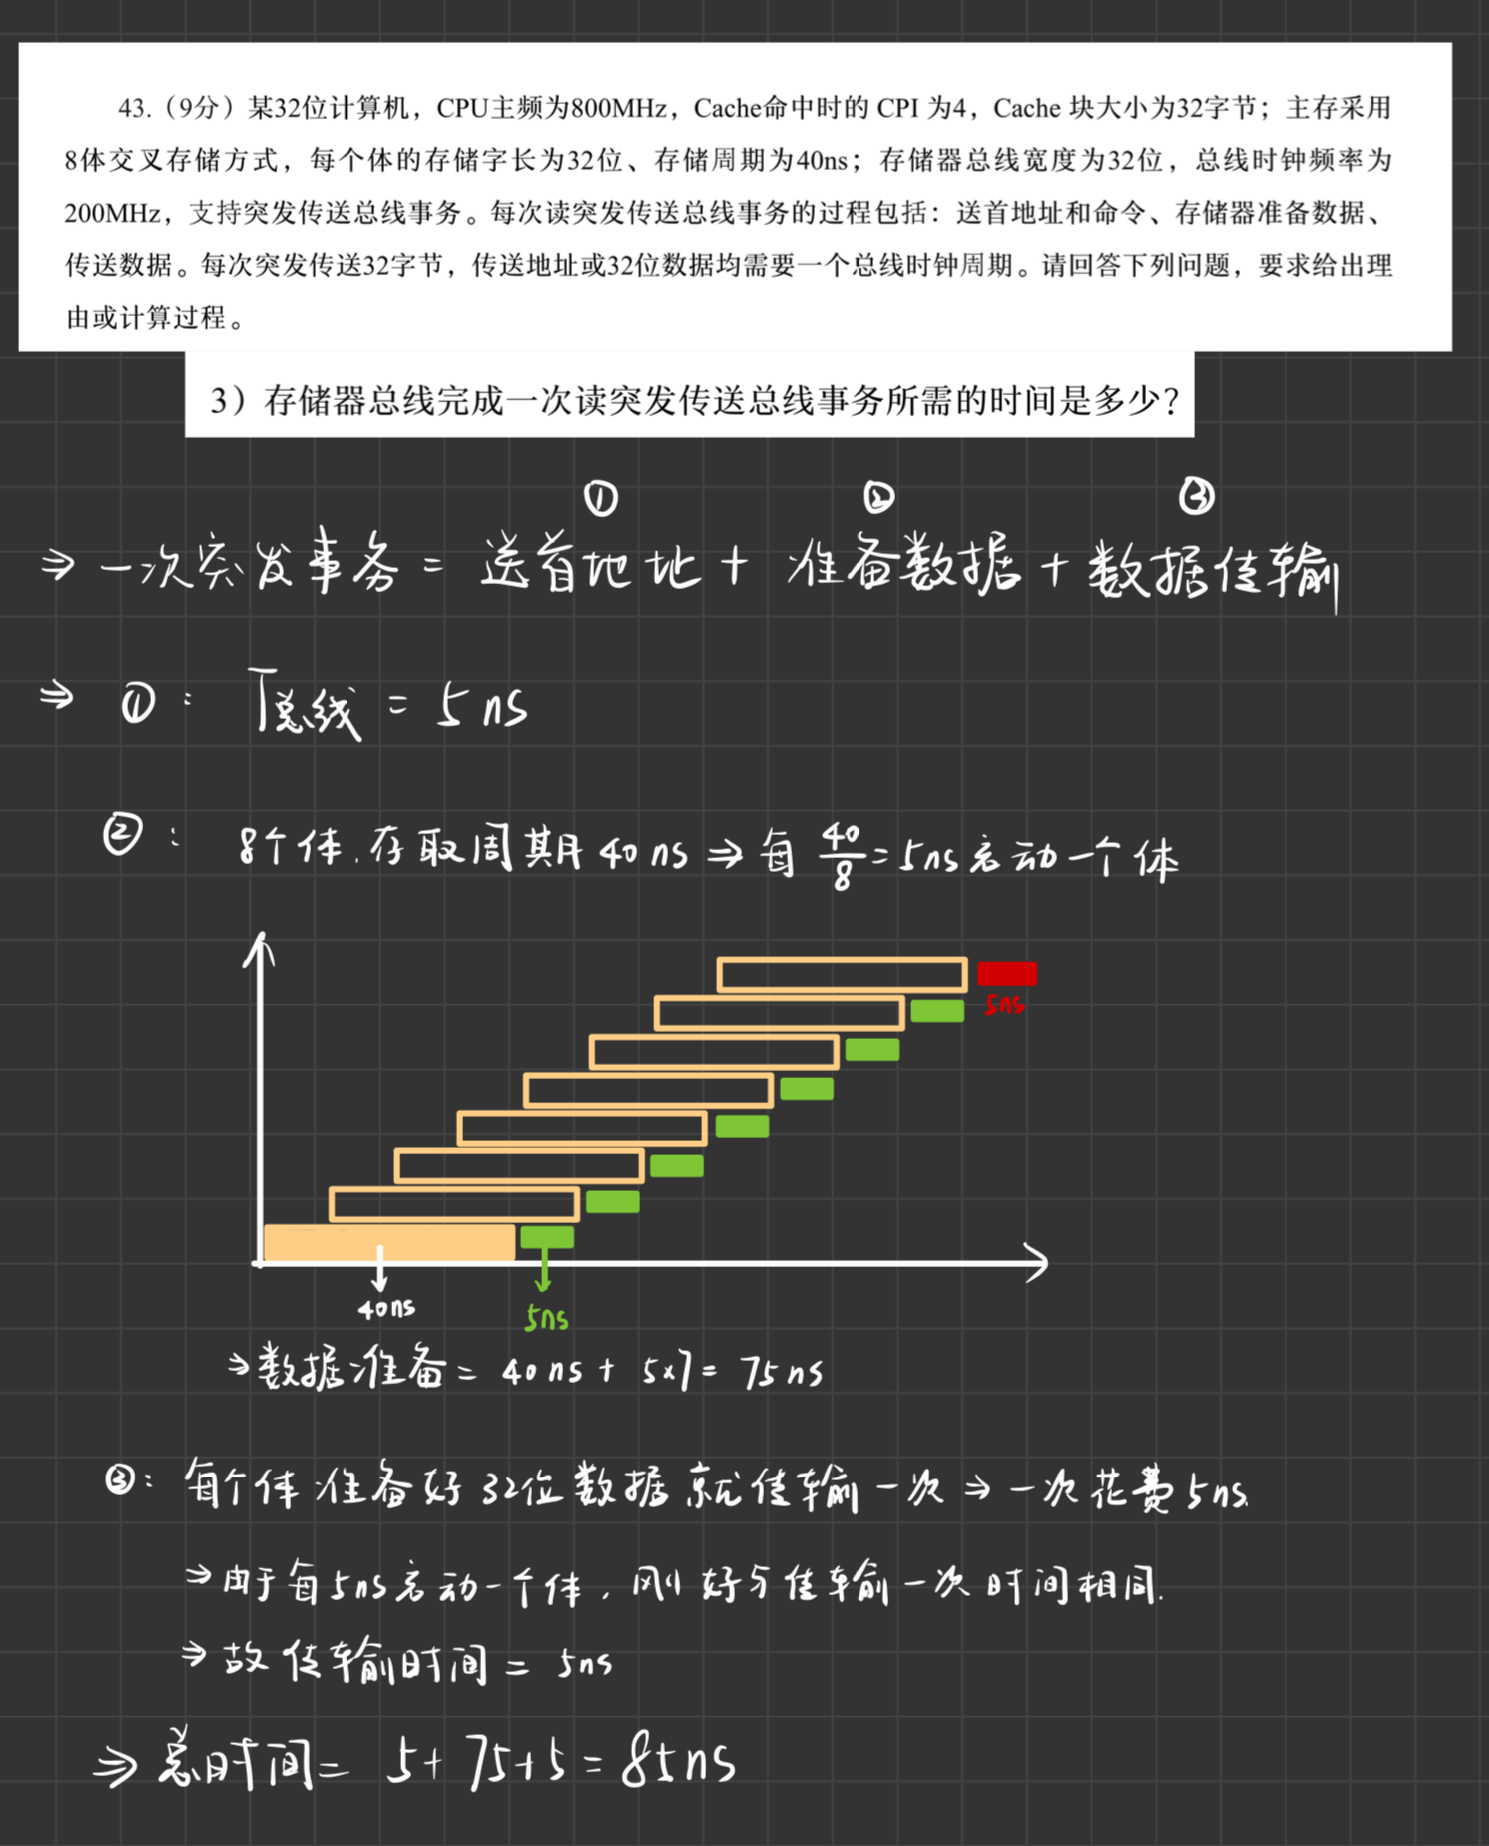 43.（9分）某32位计算机，CPU主频为800MHz，Cache命中时的 CPI 为4，Cache 块大小为32字节；主存采用
8体交叉存储方式，每个体的存储字长为32位、存储周期为40ns；存储器总线宽度为32位，总线时钟频率为
200MHz，支持突发传送总线事务。每次读突发传送总线事务的过程包括：送首地址和命令、存储器准备数据、
传送数据。每次突发传送32字节，传送地址或32位数据均需要一个总线时钟周期。请回答下列问题，要求给出理
由或计算过程。
3）存储器总线完成一次读突发传送总线事务所需的时间是多少？
① ② ③
⇒ 一次突发事务 = 送首地址 + 准备数据 + 数据传输
⇒ ①： T总线 = 5 ns
②： 8个体，存取周期 40 ns ⇒ 每 40/8 = 5ns 启动一个体
5ns
40ns
5ns
⇒ 数据准备 = 40 ns + 5×7 = 75 ns
③： 每个体准备好 32位数据就传输一次 ⇒ 一次花费 5ns.
⇒ 由于每5ns启动一个体，刚好与传输一次时间相同.
⇒ 故传输时间 = 5ns
⇒ 总时间 = 5 + 75 + 5 = 85 ns